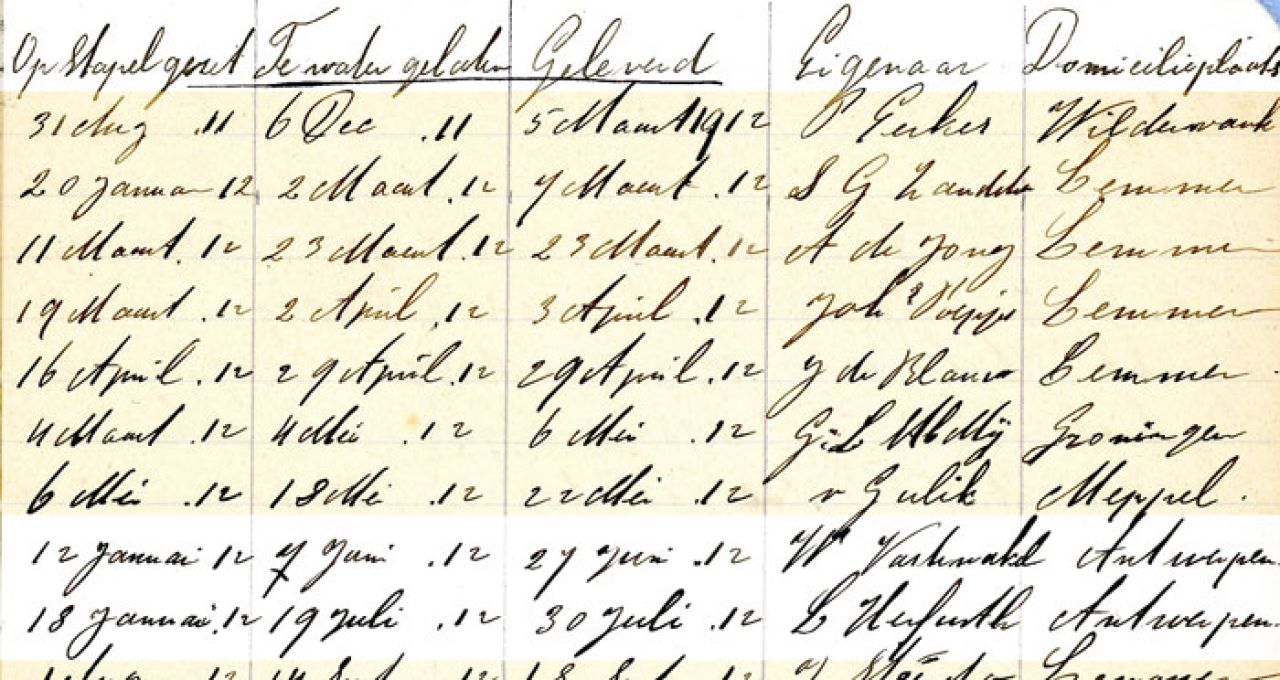 Op Stapel gezet Te water gelaten Geleverd Eigenaar Domicilieplaats
31 Aug .11 6 Dec .11 5 Maart 1912 P Wildervank
20 Januar 12 2 Maart .12 7 Maart .12 S G Lemmer
11 Maart .12 23 Maart .12 23 Maart .12 A de Jong Lemmer
19 Maart .12 2 April .12 3 April .12 Joh Lemmer
16 April .12 29 April .12 29 April .12 J de Blauw Lemmer
4 Maart .12 4 Mei .12 6 Mei .12 Groningen
6 Mei .12 18 Mei .12 22 Mei .12 v Gulik Meppel .
12 Januari 12 7 Juni .12 27 Juni .12 W Antwerpen.
18 Januari .12 19 Juli .12 30 Juli .12 L Herfurth Antwerpen.